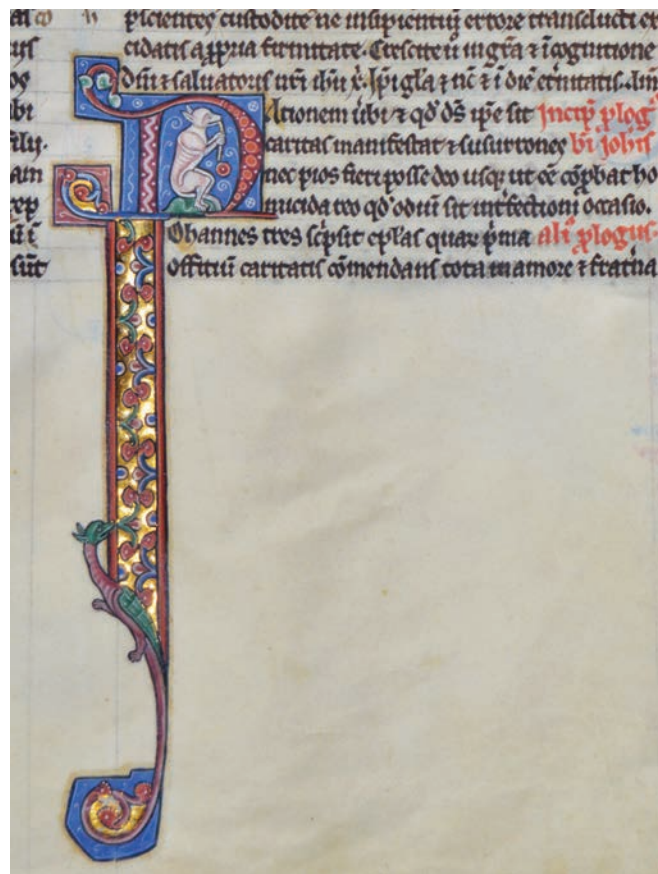 bi
am
rep
ū ī
sūt
piscientes custodite ne insipientiū errore transducti ex
cidatis a ꝓpria firmitate. Crescite ů in gr̄a ⁊ ī cognitione
dn̄i ⁊ saluatoris nr̄i ihū x̄. Ip̄i gl̄a ⁊ nc̄ ⁊ ī die et̄nitatis. Am̄
Rationem ůbi ⁊ qd' ds̄ ip̄e sit Incip̄ ꝓlog'
caritas manifestat ⁊ susurrones bī Johis
nec pios fieri posse deo usqꝫ ut ēē cōp̄bat ho
mucida eo qd' odiū sit int̄fectioni occasio.
Iohannes tres sc̄psit ep̄las quaꝝ p̄ma ali' ꝓlogus.
offitiū caritatis cōmendans tota in amore ⁊ frat̄na